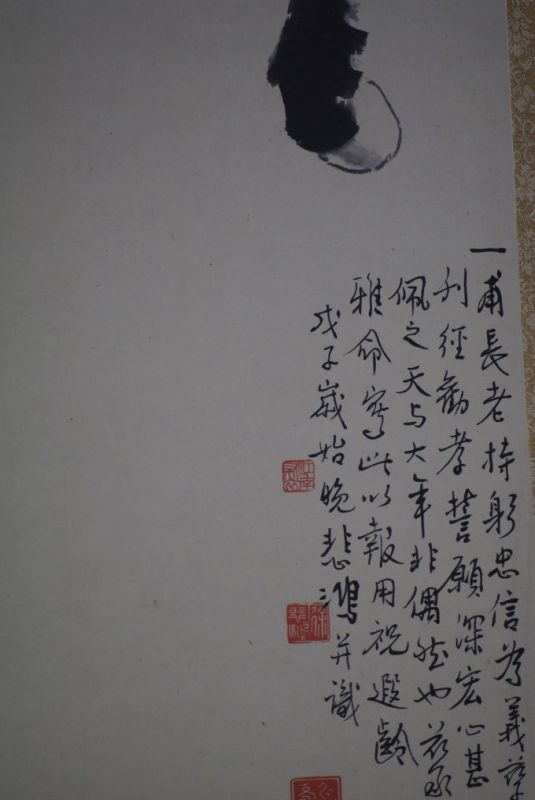 一甫長老持躬忠信為義
刊經勸孝誓願深宏心甚
佩之天与大年非偶然也茲承
雅命寫此以報用祝遐齡
戊子歲始晚悲鴻并識